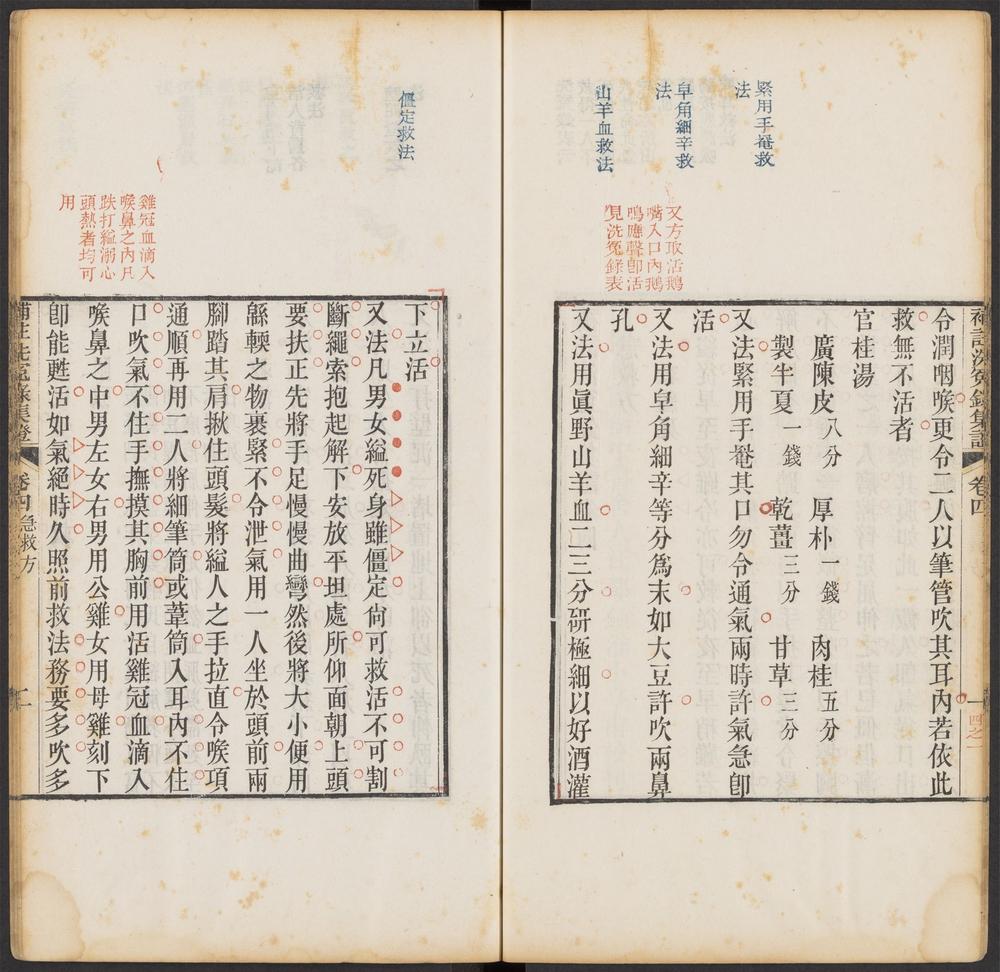 緊用手罨救
法
皁角細辛救
法
山羊血救法
又方取活鵝
嘴入口內鵝
鳴應聲卽活
見洗冤錄表
令潤咽喉更令二人以筆管吹其耳內若依此
救無不活者
官桂湯
廣陳皮八分 厚朴一錢 肉桂五分
製半夏一錢 乾薑三分 甘草三分
又法緊用手罨其口勿令通氣兩時許氣急卽
活
又法用皁角細辛等分爲末如大豆許吹兩鼻
孔
又法用眞野山羊血二三分硏極細以好酒灌
補註洗冤錄集證 卷四
一
四之一
僵定救法
雞冠血滴入
喉鼻之內凡
跌打縊溺心
頭熱者均可
用
下立活
又法凡男女縊死身雖僵定尙可救活不可割
斷繩索抱起解下安放平坦處所仰面朝上頭
要扶正先將手足慢慢曲彎然後將大小便用
緜輭之物裹緊不令泄氣用一人坐於頭前兩
腳踏其肩揪住頭髮將縊人之手拉直令喉項
通順再用二人將細筆筒或葦筒入耳內不住
口吹氣不住手撫摸其胸前用活雞冠血滴入
喉鼻之中男左女右男用公雞女用母雞刻下
卽能甦活如氣絕時久照前救法務要多吹多
補註洗冤錄集證 卷四急救方
二